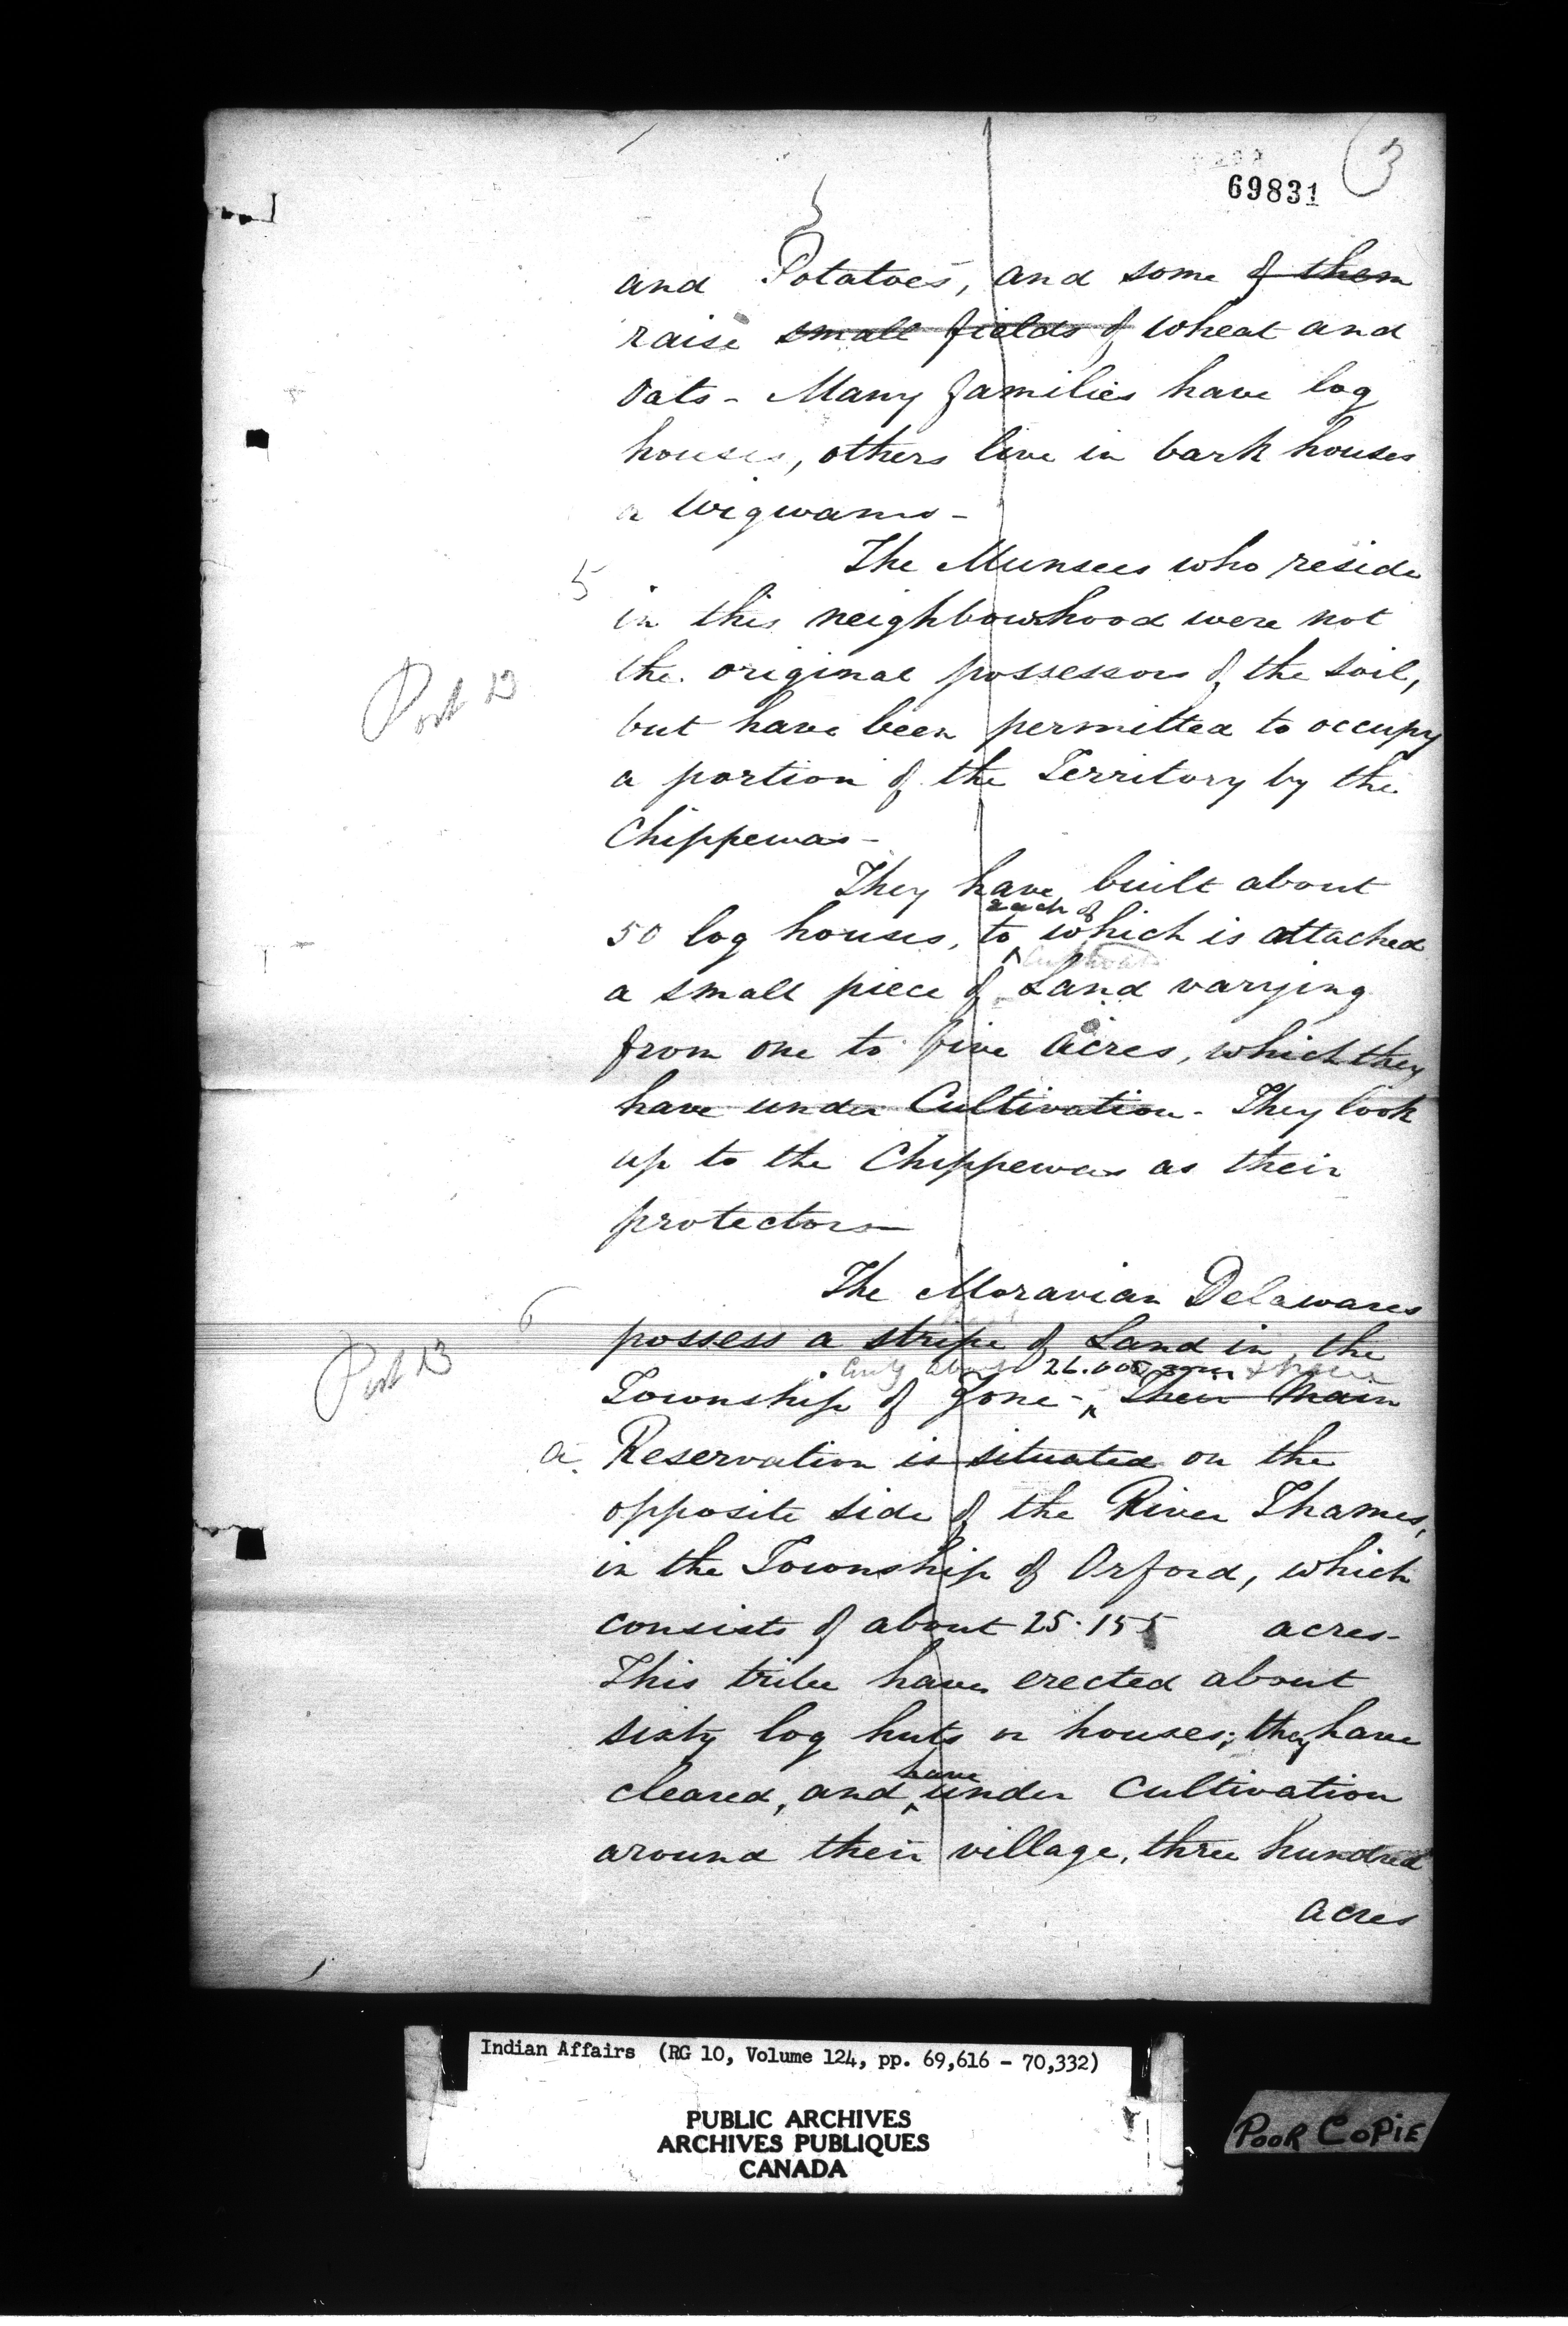 69831
3
and Potatoes, and some of them
raise small fields of wheat and
Oats - Many families have log
houses, others live in bark houses
or Wigwams -
5
The Munsees who reside
in this neighbourhood were not
the original possessors of the soil,
but have been permitted to occupy
a portion of the Territory by the
Chippewas -
They have built about
each of
50 log houses, to which is attached
a small piece of Land varying
from one to five acres, which they
have under Cultivation - They look
up to the Chippewas as their
protectors
6
The Moravian Delawares
possess a stripe of Land in the
about 26.000
Township of Zone - Their Main
a. Reservation is situated on the
opposite side of the River Thames,
in the Township of Orford, which
consists of about 25.155 acres -
This tribe have erected about
sixty log huts or houses; they have
have
cleared, and under Cultivation
around their village, three hundred
acres
Indian Affairs (RG 10, Volume 124, pp. 69,616 - 70,332)
PUBLIC ARCHIVES
ARCHIVES PUBLIQUES
CANADA
POOR COPIE